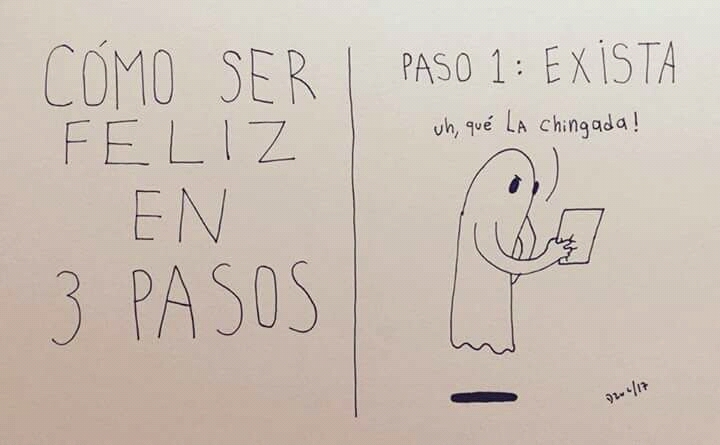 CÓMO SER
FELIZ
EN
3 PASOS
PASO 1: EXISTA
uh, qué LA chingada!